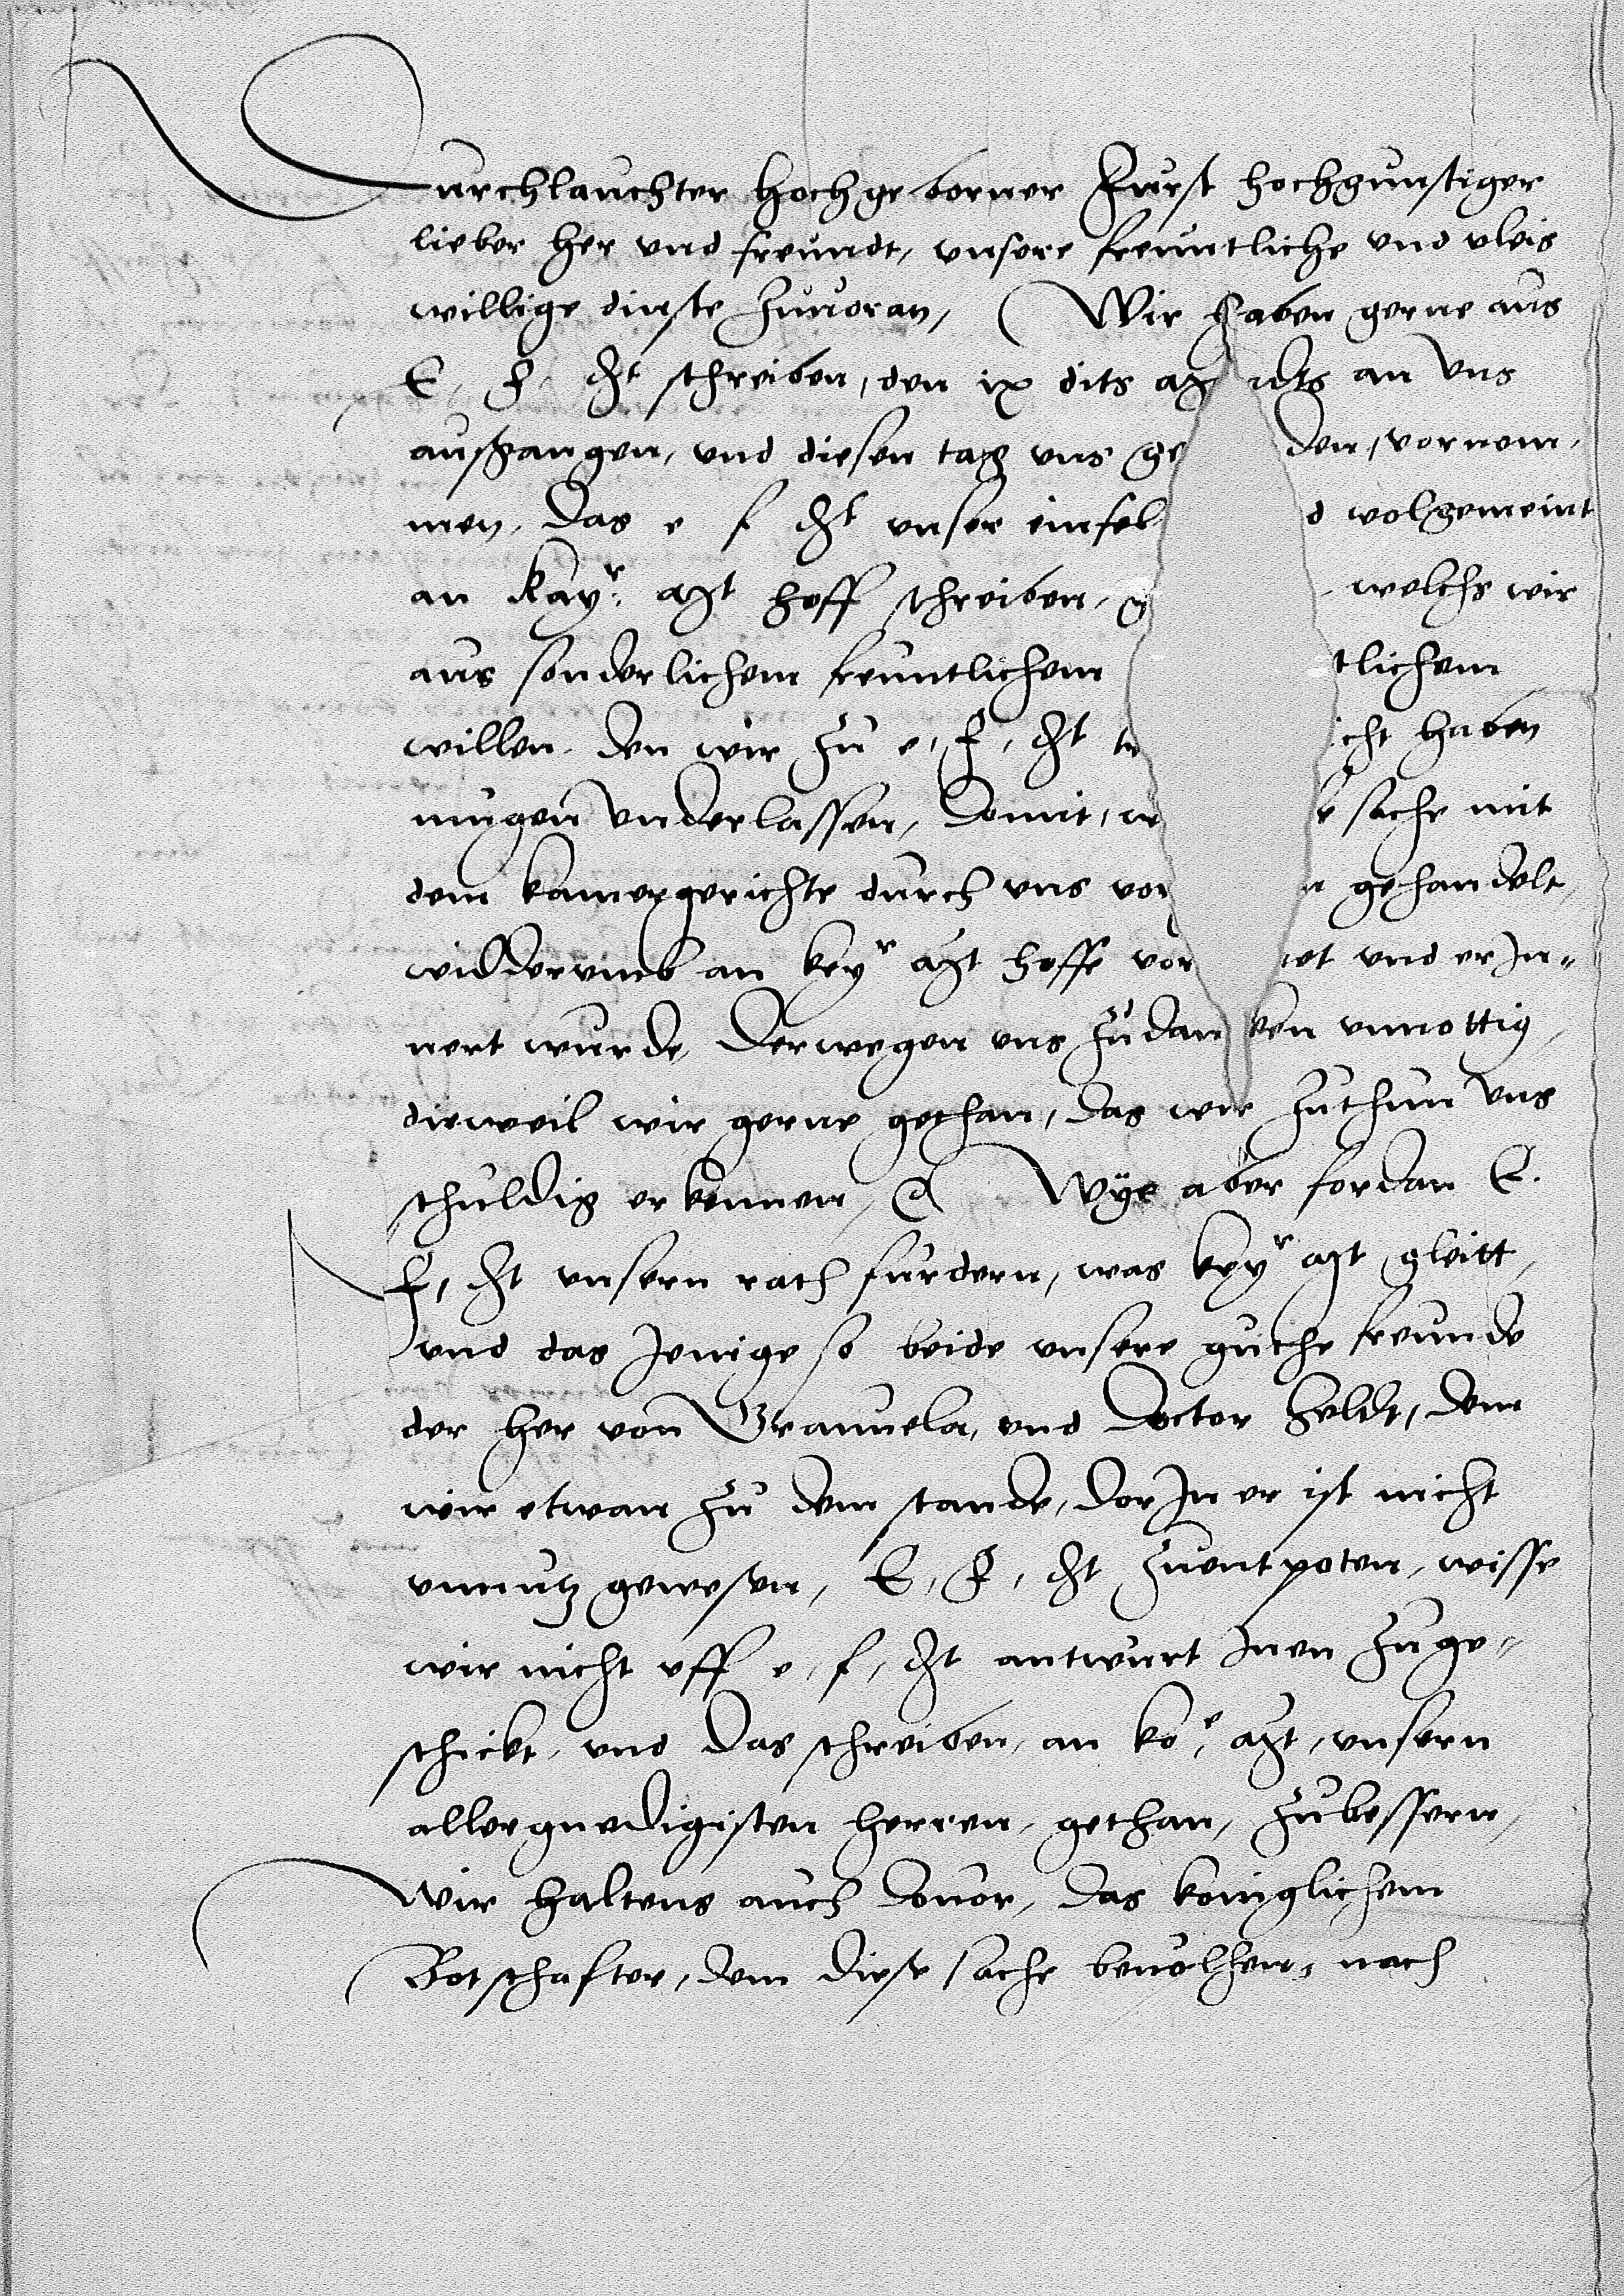 Durchlauchter hochgeborner Furst hochgunstiger
lieber her vnd freundt, vnsere freuntliche vnd vleis
willige dinste zuuoran, Wir haben gerne aus
E, f, gt schreiben, den ix dits an vns
außgangen, vnd diesen tag vns ge den, vornom,
men, das e f gt vnser einfel d volgemeint
an kayr. mt hoff schreiben, welchs wir
aus sonderlichem freuntlichem tlichem
willen, den wir zu e, f, gt tr icht haben
mugen vnderlassen, Domit, w e sache mit
dem kamergerichte durch vns vor n gehandelt,
widderumb an keyr mt hoffe vor et vnd erIn„
nert wurde, Derwegen vns zudancken vnnottig,
dieweil wir gerne gethan, das wir zuthun vns
schuldig erkennen, Wye aber fordan E.
f, gt vnsern rath furdern, was keyr mt gleitt,
vnd das Jenige so beide vnsere guthe freunde
der her von Granuela, vnd Doctor Heldt, dem
wir etwan zu dem stande, dorJn er ist nicht
vnnutz gewesen, E, f, gt zuentpoten, wisse
wir nicht vff e, f, gt antwurt Inen zuge„
schickt, vnd das schreiben, an ko, mt, vnsern
allergnedigisten herren, gethan, zubessern,
Wir haltens auch douor, das koniglichem
Botschafter, dem diese sache beuolhen, nach